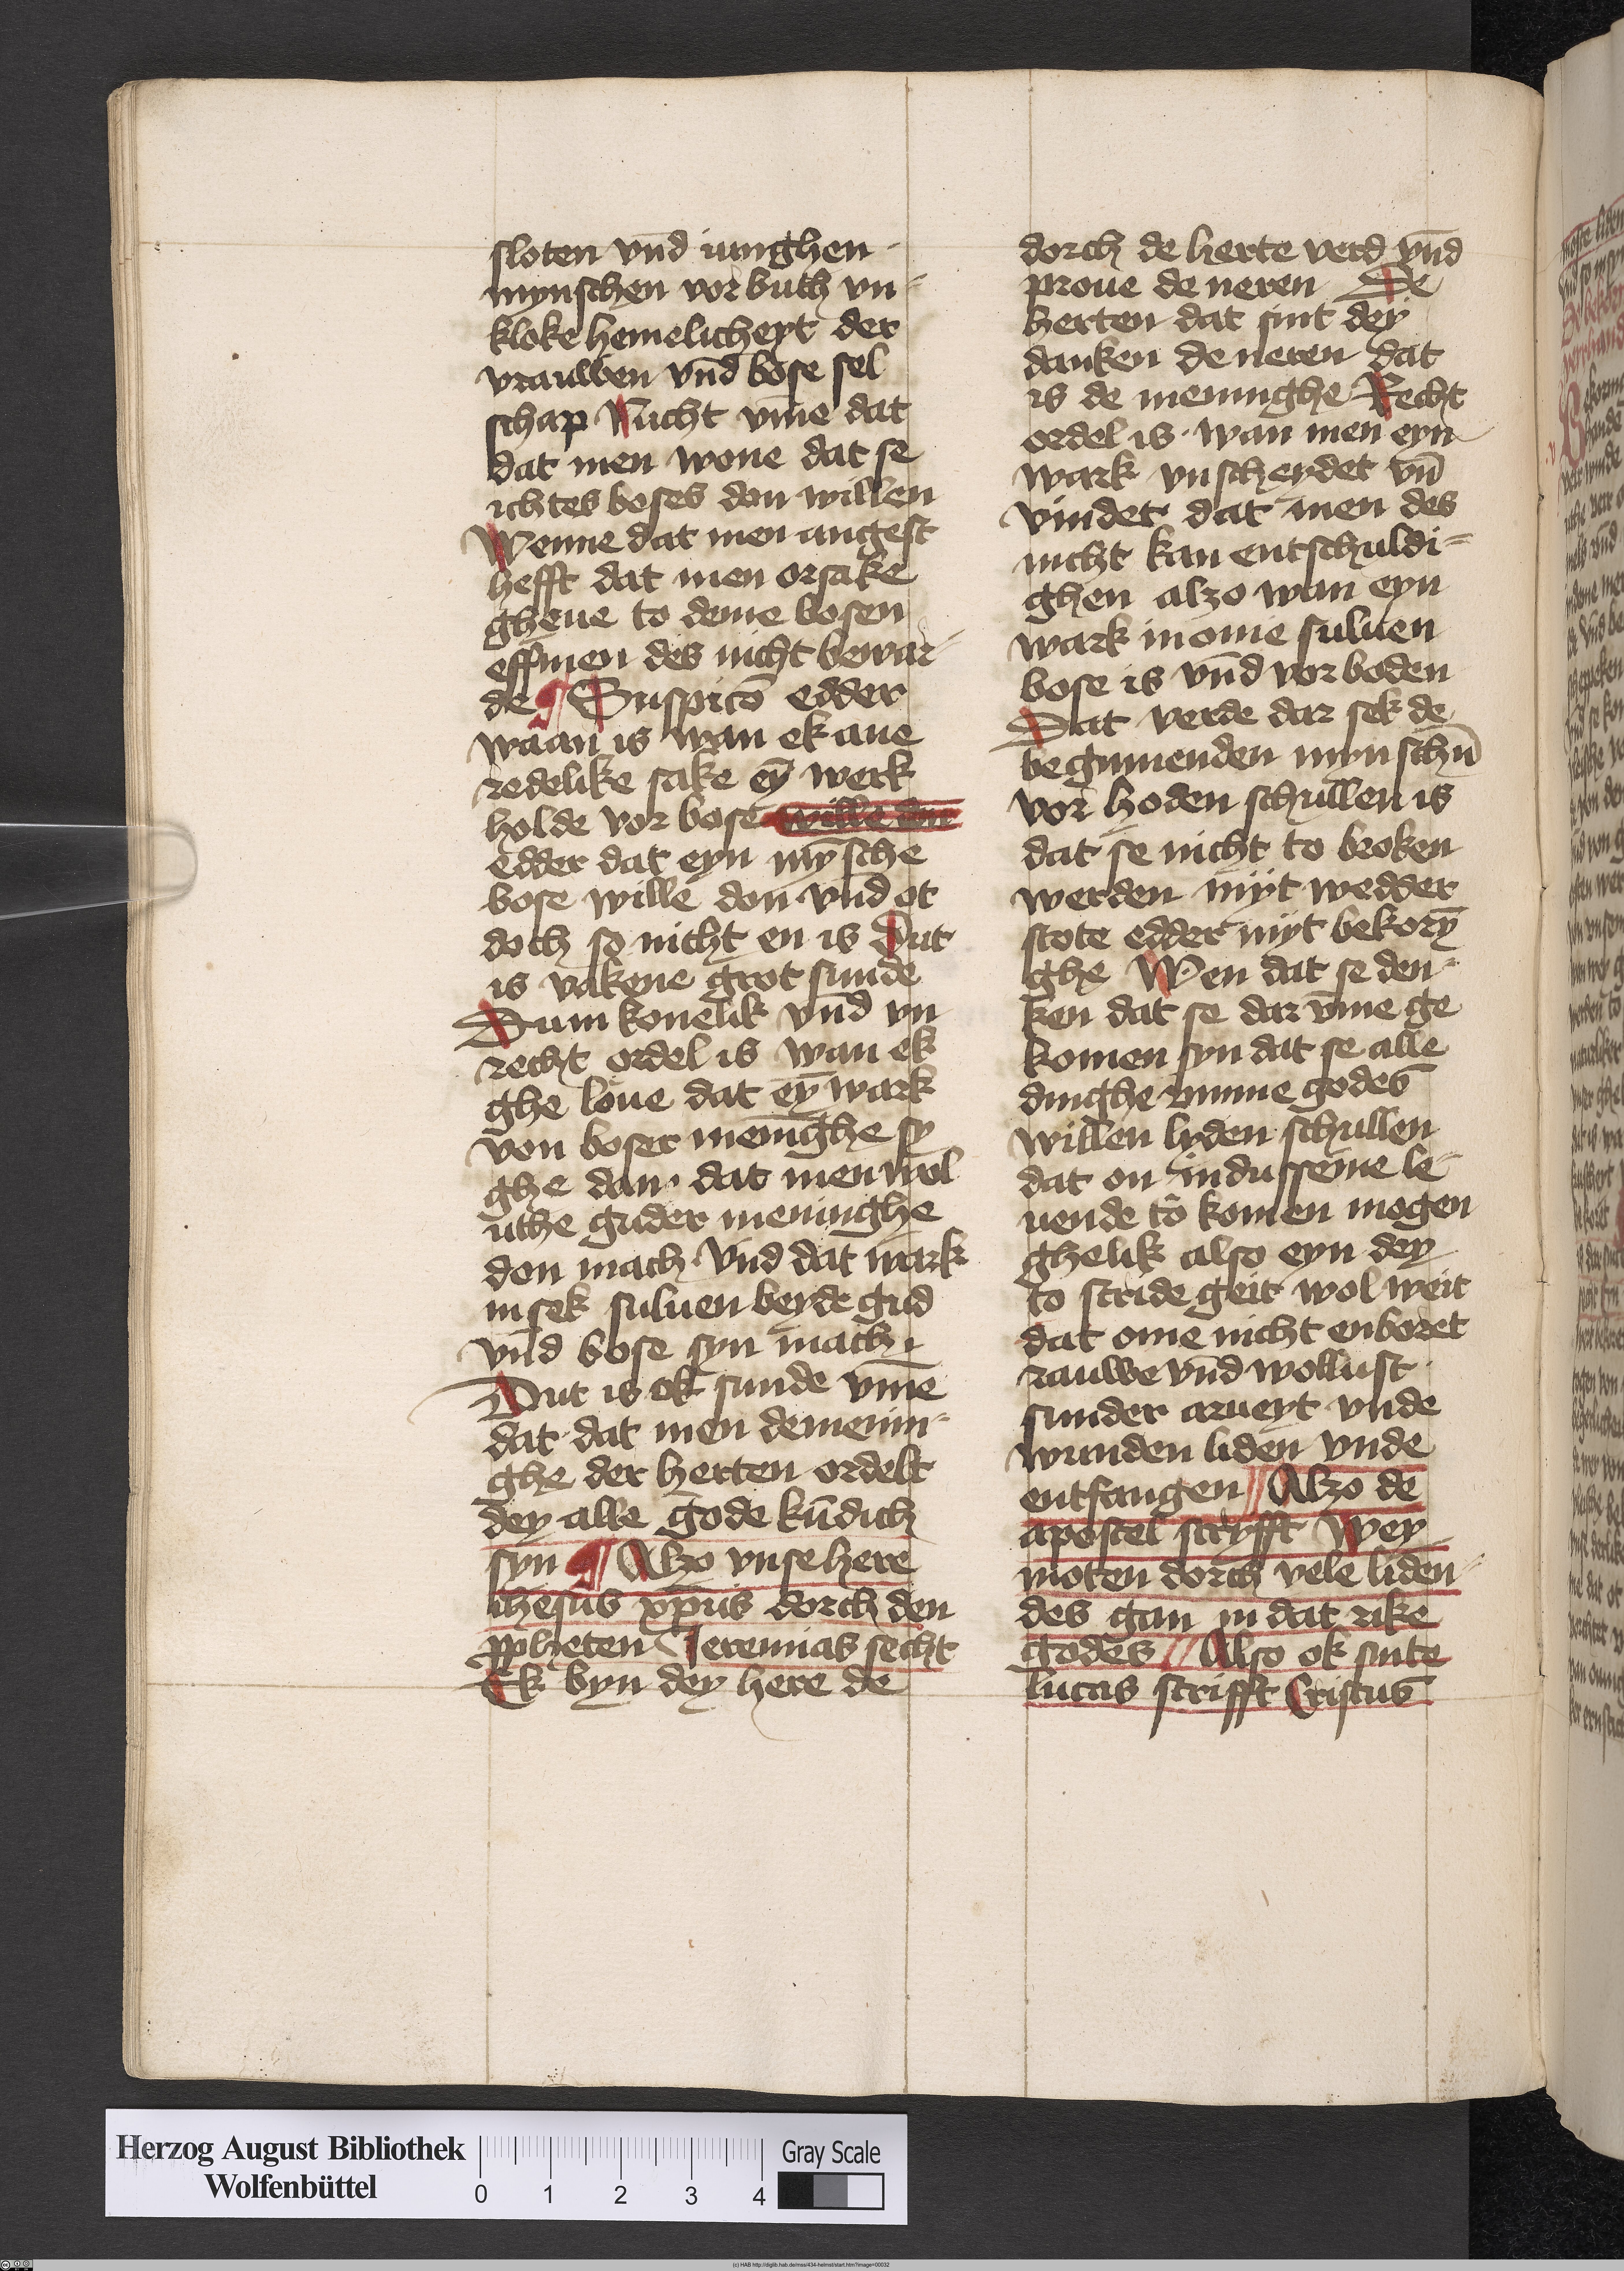 sloten vnd̄ iunghen
mynschen vorbuth vn-
kloke hemelicheyt der
vrauwen vnd̄ bose sel
schap Nicht vm̄e dat
dat men wone dat se
ichtes boses don willen
Wenne dat men angest
hefft dat men orsake
gheue to deme bosen
eff men des nicht bewar-
de ¶ Suspicō edder
waan is wan ek ane
redelike sake eȳ werk
holde vor bose wille don
edder dat eyn mȳsche
bose wille don vnd̄ ot
doch so nicht en is Dut
is vakene grot sunde
Dumkonelik vnd̄ vn
recht ordel is wan ek
ghe loue dat eȳ wark
von boser menīghe sy
ghe dan· dat men wol
uthe guder meninghe
don mach Vnd dat wark
in sek suluen beyde gud
vnd̄ bose syn mach
Dut is ok sunde vm̄e
dat dat men de menin-
ghe der herten ordelt
dey alle gode kūdich
syn ¶ Alzo vnse here
ihesus xp̄us dorch den
ppheten Jeremias secht
Ek byn dey here de
dorch de herte verd vnd̄
proue de neren De
herten dat sint dey
danken de neren dat
is de meninghe Recht
ordel is· wan men eyn
wark vnscheydet vn̄
vindet dat men des
nicht kan entschuldi-
ghen alzo wan eyn
wark in ome suluen
bose is vnd̄ vorboden
Dat verde dar sek de
begunnenden mynschn̄
vor hoden schullen is
dat se nicht to broken
werden myt wedder
stote edder myt bekorȳ
ghe Wen dat se den-
ken dat se dar vm̄e ge
komen syn dat se alle
dinghe vmme godes
willen lyden schullen
dat on in dusseme le-
uende to komen mogen
ghelik also eyn dey
to stride geit wol weit
dat ome nicht enboret
rauwe vnd̄ wollust
sunder arueyt vnde
wunden liden vnde
entfangen // Alzo de
apostel scryfft Wey
moten dorch vele liden-
des gan in dat rike
godes // Also ok sinte
lucas strifft Cristus
Herzog August Bibliothek
Wolfenbüttel
0 1 2 3 4
Gray Scale
(c) HAB http://diglib.hab.de/mss/434-helmst/start.htm?image=00032